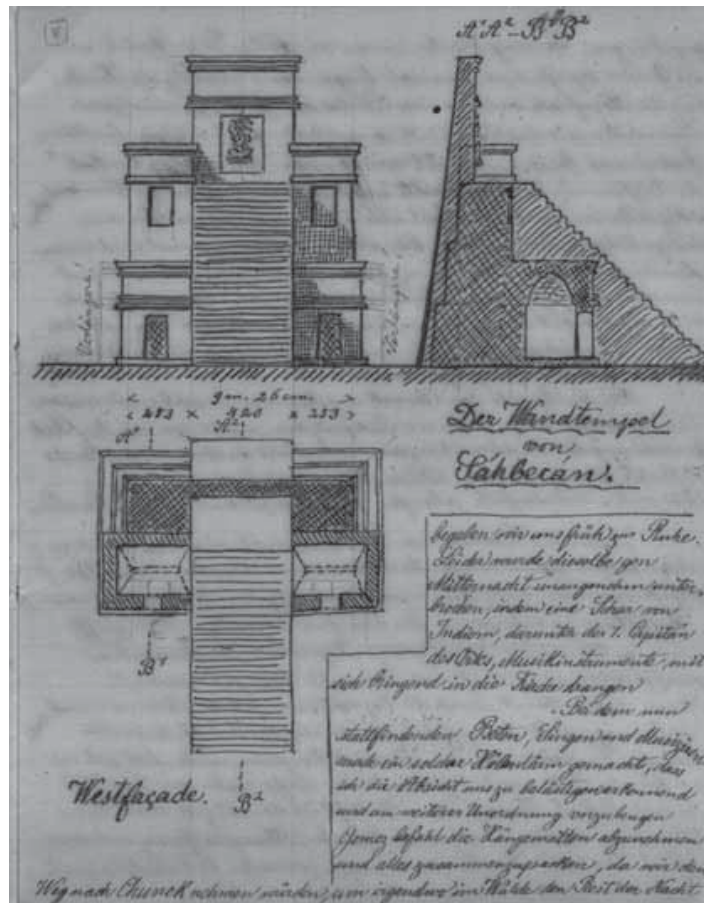 A¹ A² – B¹ B²
Verlängert
Verlängert
9 m. 26 cm.
253 × 420 × 253
A¹
A²
Der Wandtempel
von
Sáhbecan.
begaben wir uns früh zur Ruhe.
Leider wurde dieselbe gen
Mitternacht unangenehm unter-
brochen, indem eine Schar von
Indiern, darunter der 1. Capitän
des Ortes, Musikinstrumente mit
sich bringend in die Kirche drangen
Bei dem nun
stattfindenden Beten, Singen und Musizieren
wurde ein solcher Höllenlärm gemacht, dass
ich die Absicht uns zu belästigen erkennend
und um weiterer Unordnung vorzubeugen
Gomez befahl die Hängematten abzunehmen
und alles zusammenzupacken, da wir den
Weg nach Chunek nehmen würden, um irgendwo im Walde den Rest der Nacht
B¹
Westfaçade.
B²